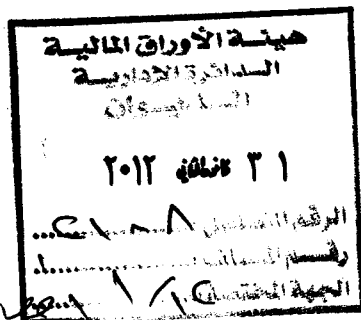 هيئة الأوراق المالية
الدائرة الإدارية
الديوان
٣١ كانون الثاني ٢٠١٢
الرقم المتسلسل
رقم الملف
الجهة المختصة